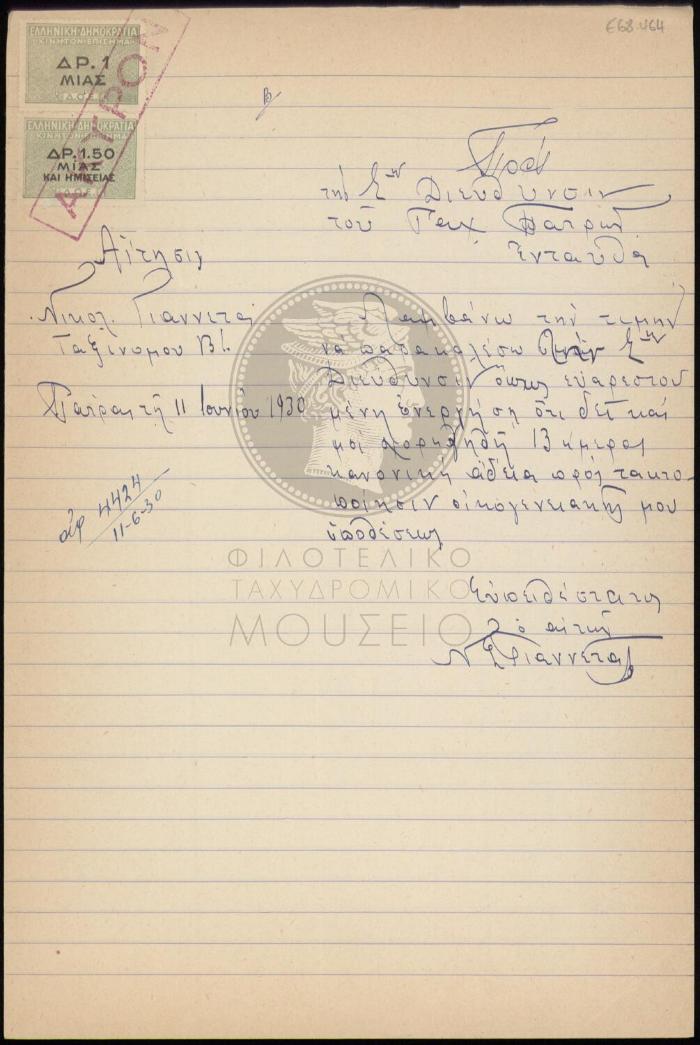 Ε68.464
ΕΛΛΗΝΙΚΗ·ΔΗΜΟΚΡΑΤΙΑ
ΚΙΝΗΤΟΝ·ΕΠΙΣΗΜΑ
ΔΡ. 1
ΜΙΑΣ
ΕΛΛΗΝΙΚΗ·ΔΗΜΟΚΡΑΤΙΑ
ΚΙΝΗΤΟΝ·ΕΠΙΣΗΜΑ
ΔΡ. 1.50
ΜΙΑΣ
ΚΑΙ ΗΜΙΣΕΙΑΣ
ΑΚΥΡΟΝ
Πρός
τήν Σην Διεύθυνσιν
τοῦ Ταχ. Πατρῶν
Ἐνταῦθα
Αἴτησις
Νικολ. Γιαννετα
Ταξινόμου Β!.
Πάτραι τῇ 11 Ιουνίου 1930
αρ 4424
11-6-30
Λαμβάνω τήν τιμήν
νά παρακαλέσω Σην
Διεύθυνσιν ὅπως εὐαρεστου
μένη ἐνεργήσῃ ὅτι δεῖ καί
μοί χορηγηθῇ 13 ἡμερος
κανονική ἄδεια πρός τακτο-
ποίησιν οἰκογενειακῆς μου
ὑποθέσεως
Εὐπειθέστατος
ὁ αἰτῶν
Ν Γιαννετας
ΦΙΛΟΤΕΛΙΚΟ
ΤΑΧΥΔΡΟΜΙΚΟ
ΜΟΥΣΕΙΟ